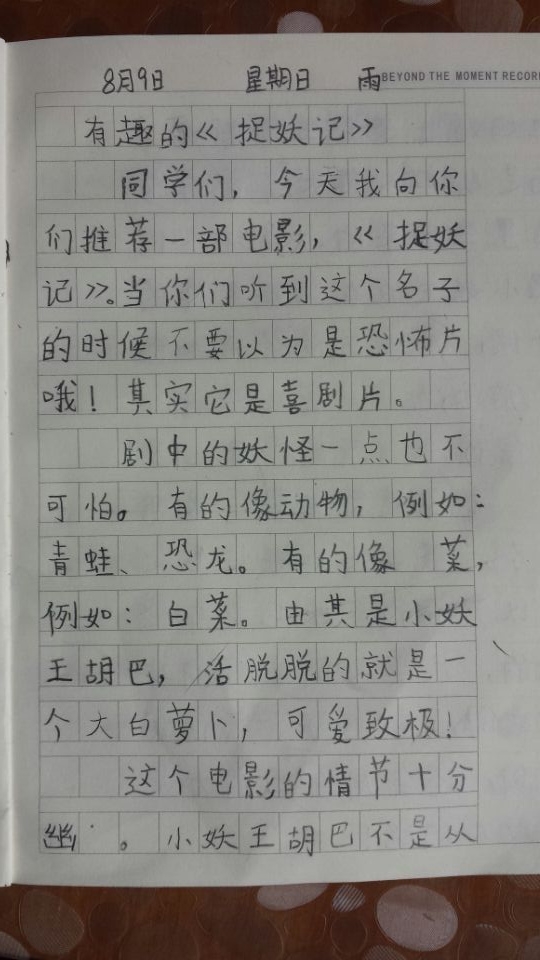 8月9日 星期日 雨 BEYOND THE MOMENT RECOR
有趣的《捉妖记》
同学们，今天我向你
们推荐一部电影，《捉妖
记》。当你们听到这个名子
的时候不要以为是恐怖片
哦！其实它是喜剧片。
剧中的妖怪一点也不
可怕。有的像动物，例如：
青蛙、恐龙。有的像 菜，
例如：白菜。由其是小妖
王胡巴，活脱脱的就是一
个大白萝卜，可爱致极！
这个电影的情节十分
幽 。小妖王胡巴不是从